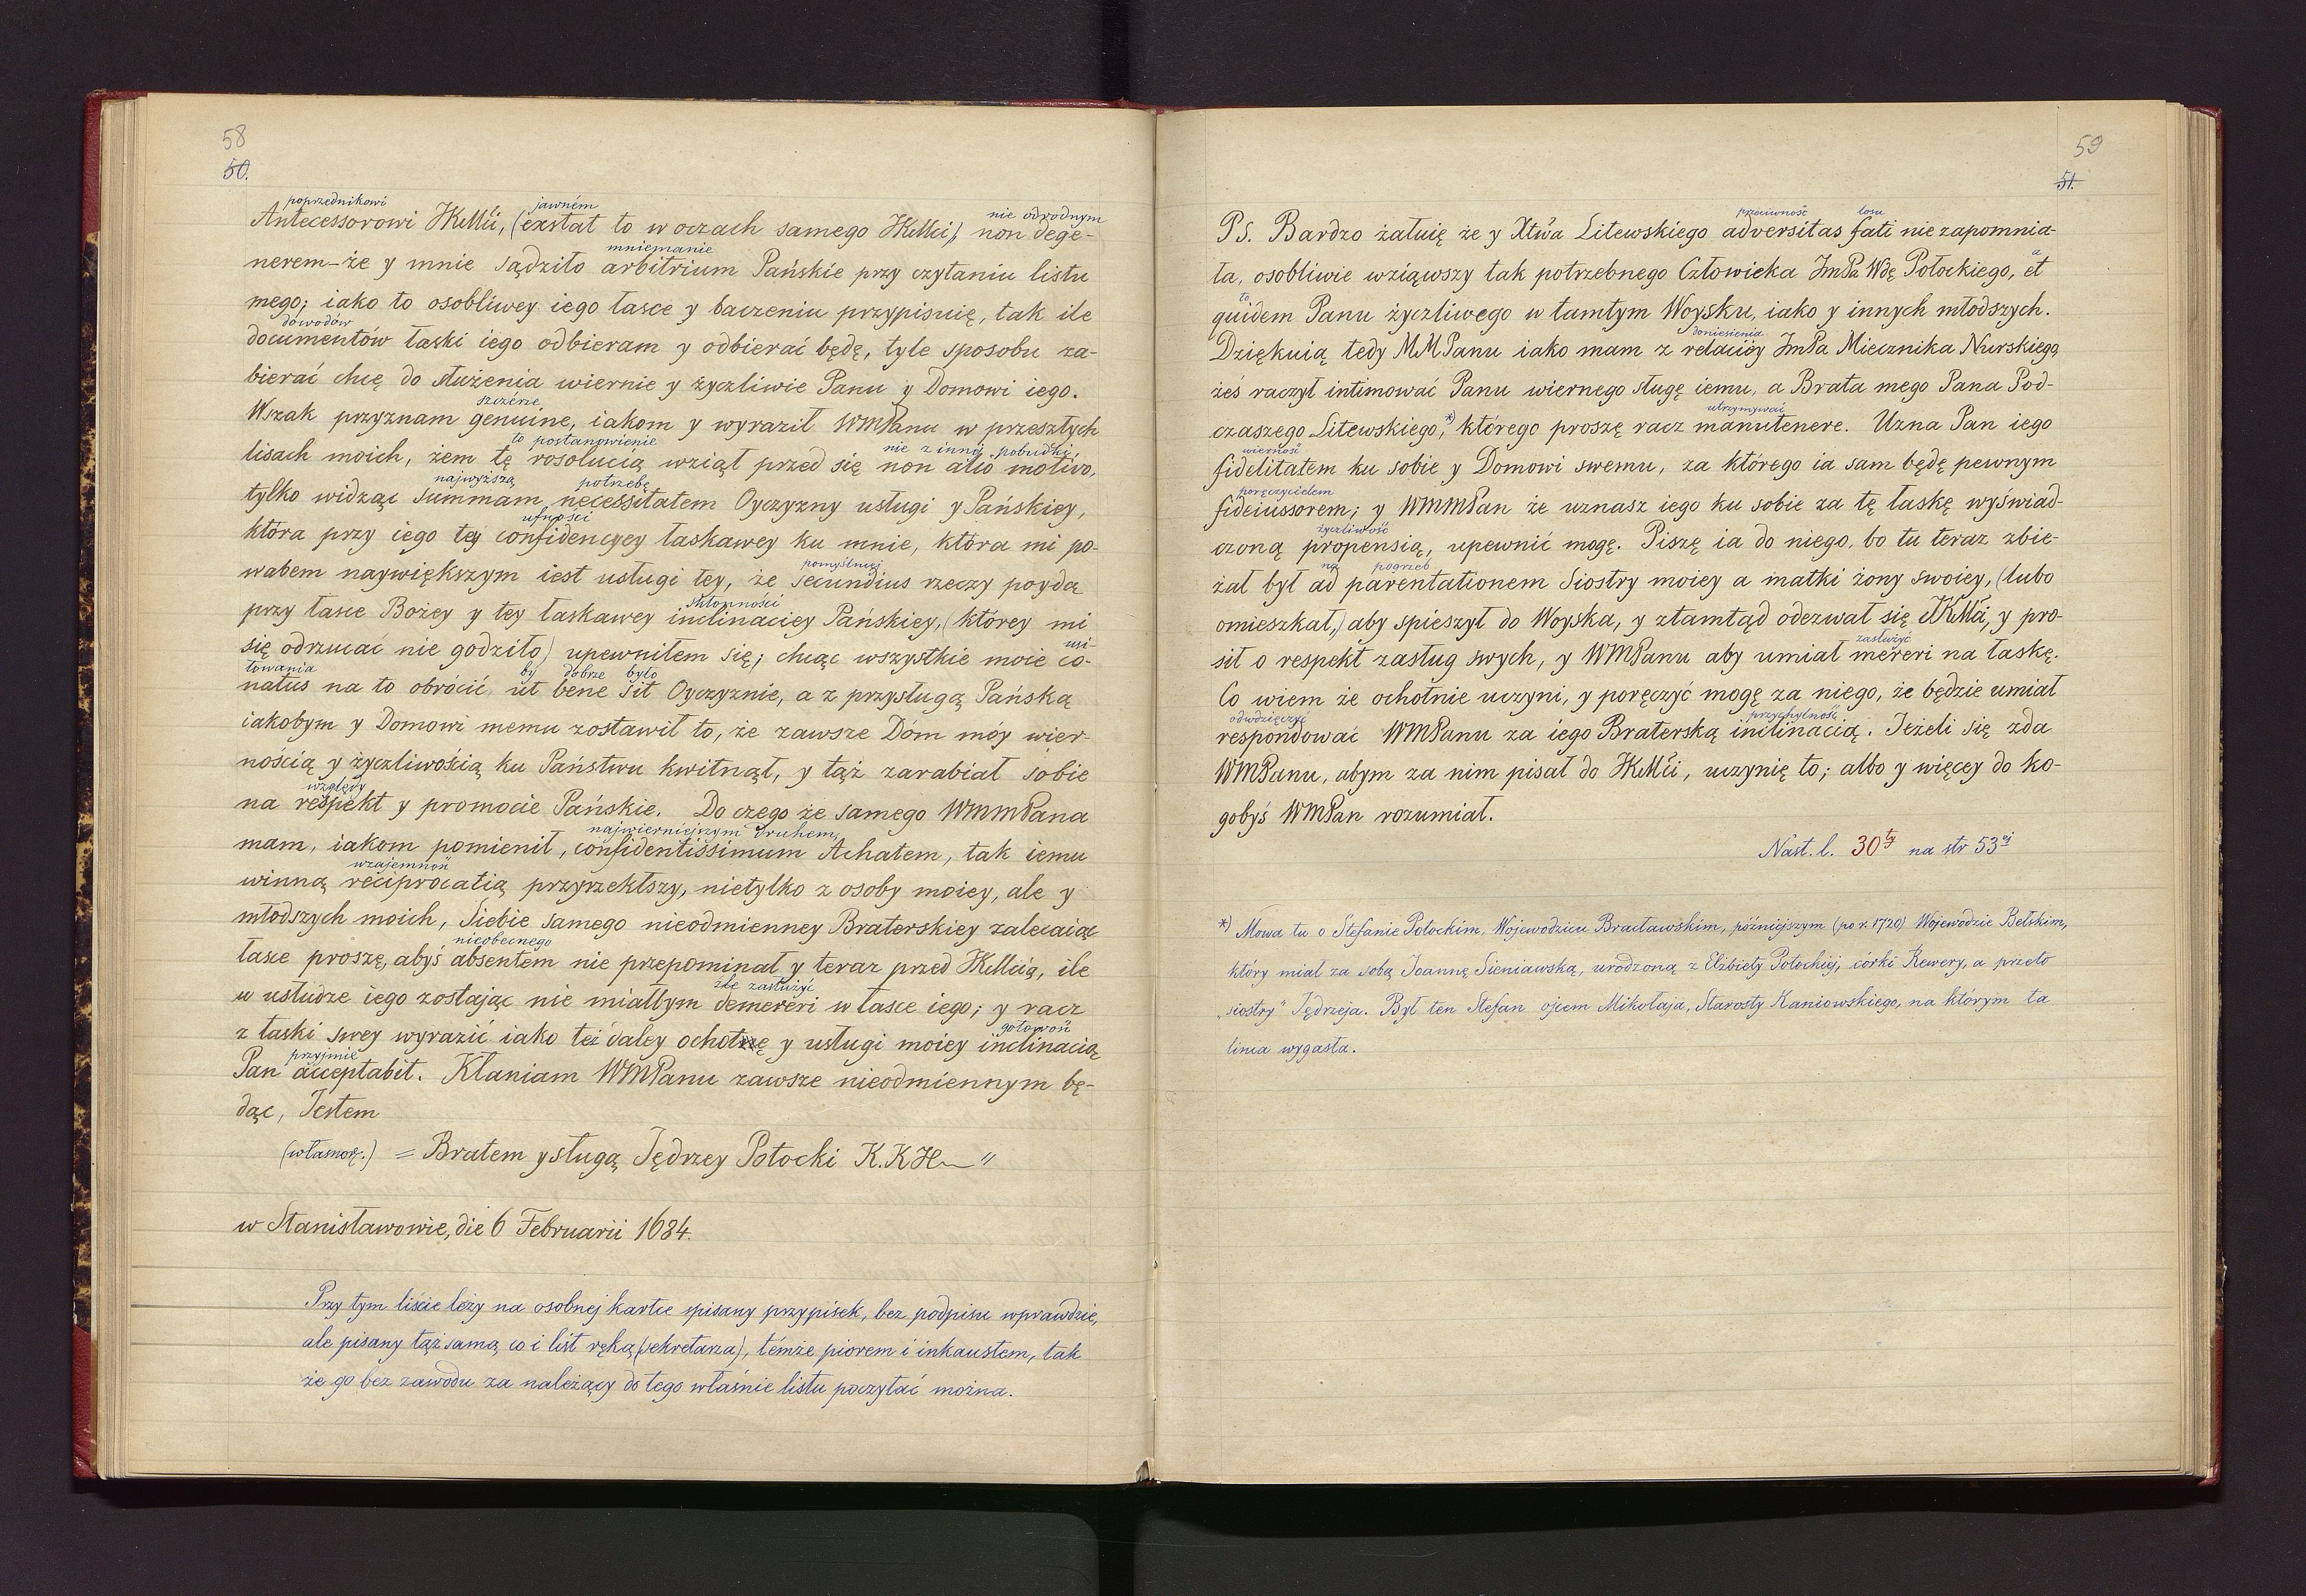 58
50.
poprzednikowi jawném nie odrodnym
Antecessorowi JKMći, (exstat to w oczach samego JKMći), non dege-
mniemanie
nerem—że y mnie sądziło arbitrium Pańskie przy czytaniu listu
mego; iako to osobliwey iego łasce y baczeniu przypisuię, tak ile
dowodów
documentów łaski iego odbieram y odbierać będę, tyle sposobu za-
bierać chcę do służenia wiernie y życzliwie Panu y Domowi iego.
szczérze
Wszak przyznam genuine, iakom y wyraził WMPanu w przeszłych
to postanowienie nie z innej pobudki,
lisach moich, żem tę rosolucią wziął przed się non alio motivo,
najwyższą potrzebę
tylko widząc summam necessitatem Oyczyzny usługi y Pańskiey,
ufności
która przy iego tey confidencyey łaskawey ku mnie, która mi po-
pomyślniej
wabem naywiększym iest usługi tey, że secundius rzeczy poyda
skłonności
przy łasce Bożey y tey łaskawey inclinaciey Pańskiey, (którey mi
usi-
się odrzucać nie godziło) upewniłem się; chcąc wszystkie moie co-
łowania by dobrze było
natus na to obrócić, ut bene sit Oyczyznie, a z przysługą Pańską
iakobym y Domowi memu zostawił to, że zawsze Dóm móy wier-
nością y życzliwością ku Państwu kwitnął, y tąż zarabiał sobie
względy
na respekt y promocie Pańskie. Do czego że samego WMMPana
najwierniejszym druhem,
mam, iakom pomienił, confidentissimum Achatem, tak iemu
wzajemność
winną reciprocatią przyrzekłszy, nietylko z osoby moiey, ale y
młodszych moich, Siebie samego nieodmienney Braterskiey zalecaiąc
nieobecnego
łasce proszę, abyś absentem nie przepominał y teraz przed JKMcią, ile
źle zasłużyć
w usłudze iego zostając nie miałbym demereri w łasce iego; y racz
gotowość
z łaski swey wyrazić iako też daley ochotę y usługi moiey inclinacią
przyjmie
Pan acceptabit. Kłaniam WMPanu zawsze nieodmiennym bę-
dąc, Jestem
(własnorę.) = Bratem y sługą Jędrzey Potocki K.K H "
w Stanisławowie, die 6 Februarii 1684.
Przy tym liście leży na osobnej kartce spisany przypisek, bez podpisu wprawdzie,
ale pisany tąż samą co i list ręką (sekretarza), témże piorem i inkaustem, tak
że go bez zawodu za należący do tego właśnie listu poczytać można.
59
51.
przeciwność losu
Ps. Bardzo żałuię że y Xtwa Litewskiego adversitas fati nie zapomnia-
a
ła, osobliwie wziąwszy tak potrzebnego Człowieka JmPa Wdę Połockiego, et
to
quidem Panu życzliwego w tamtym Woysku, iako y innych młodszych.
doniesienia
Dziękuią tedy MMPanu iako mam z relaciiey JmPa Miecznika Nurskiego,
żeś raczył intimować Panu wiernego sługę iemu, a Brata mego Pana Pod-
utrzymywać
czaszego Litewskiego,*) którego proszę racz manutenere. Uzna Pan iego
wierność
fidelitatem ku sobie y Domowi swemu, za którego ia sam będę pewnym
poręczycielem
fideiussorem; y WMMPan że uznasz iego ku sobie za tę łaskę wyświad-
życzliwość
czoną propensią, upewnić mogę. Piszę ia do niego, bo tu teraz zbie-
na pogrzeb
żał był ad parentationem Siostry moiey a matki żony swoiey, (lubo
omieszkał,) aby spieszył do Woyska, y ztamtąd odezwał się JKMći, y pro-
zasłużyć
sił o respekt zasług swych, y WMPanu aby umiał mereri na łaskę.
Co wiem że ochotnie uczyni, y poręczyć mogę za niego, że będzie umiał
odwdzięczyć przychylność
respondować WMPanu za iego Braterską inclinacią. Jeżeli się zda
WMPanu, abym za nim pisał do JKMći, uczynię to; albo y więcey do ko-
gobyś WMPan rozumiał.
Nast. l. 30ty na str 53ej
*) Mowa tu o Stefanie Potockim, Wojewodzicu Bracławskim, późniejszym (po r. 1720) Wojewodzie Bełskim,
który miał za sobą Joannę Sieniawską, urodzoną z Elżbiety Potockiéj, córki Rewery, a przeto
„siostry" Jędrzeja. Był ten Stefan ojcem Mikołaja, Starosty Kaniowskiego, na którym ta
linia wygasła.